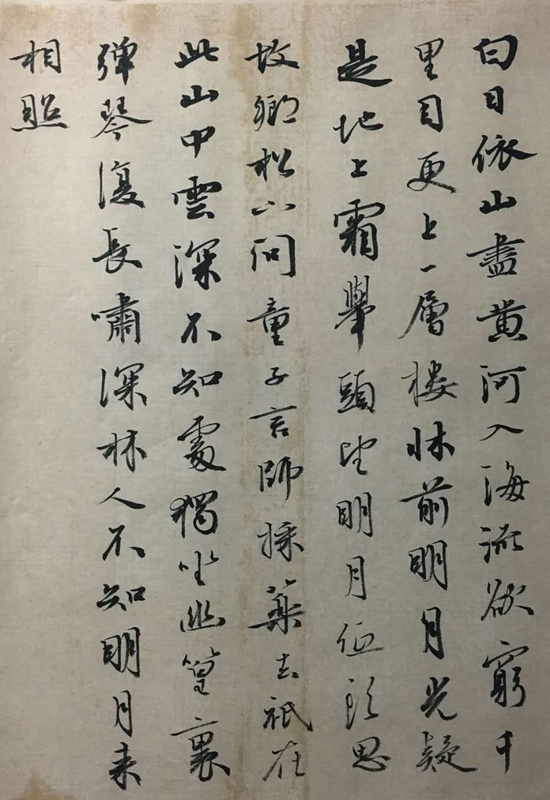 白日依山盡黄河入海流欲窮千
里目更上一層楼牀前明月光疑
是地上霜舉頭望明月低頭思
故鄉松下問童子言師採藥去祇在
此山中雲深不知處獨坐幽篁裏
彈琴復長嘯深林人不知明月来
相照